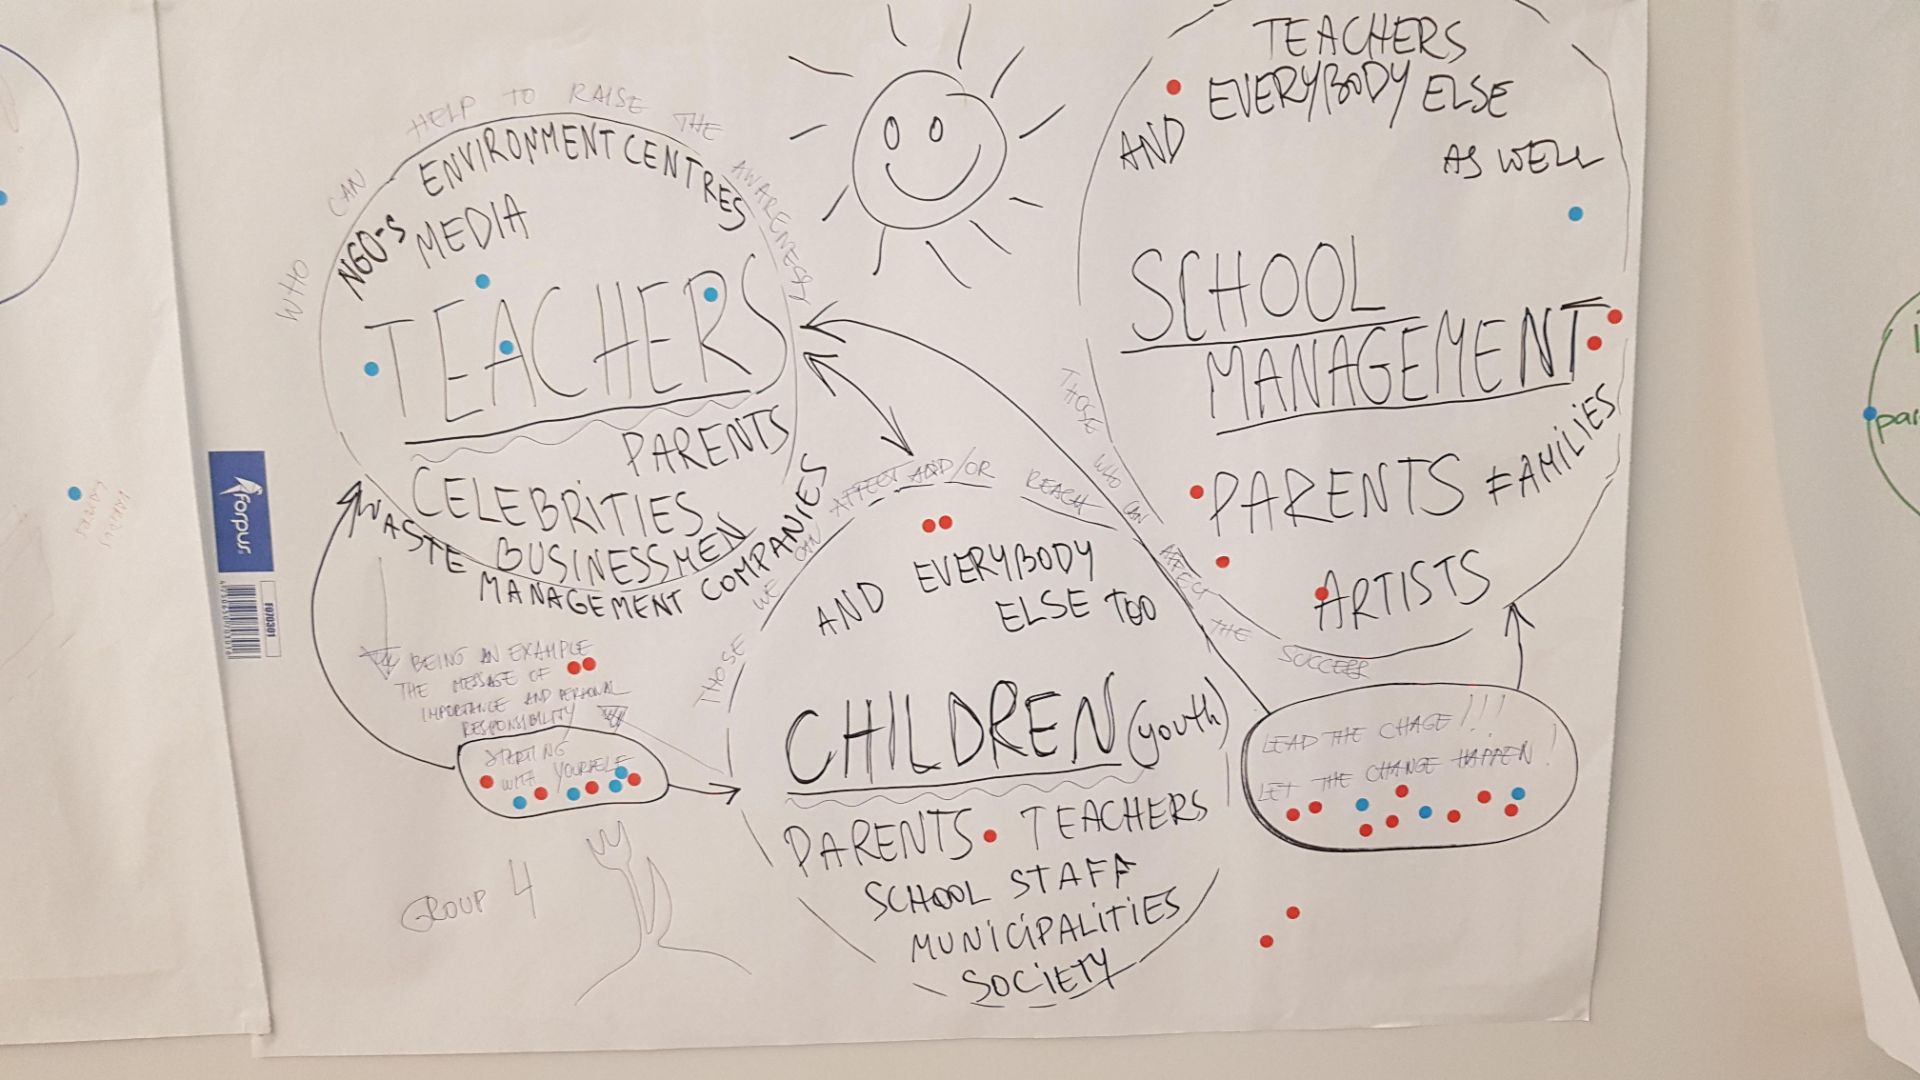 WHO CAN HELP TO RAISE THE AWARENESS
NGO-S ENVIRONMENT CENTRES
MEDIA
TEACHERS
PARENTS
CELEBRITIES
BUSINESSMEN
WASTE MANAGEMENT COMPANIES
TEACHERS
AND EVERYBODY ELSE
AS WELL
SCHOOL
MANAGEMENT
PARENTS FAMILIES
ARTISTS
THOSE WHO CAN AFFECT THE SUCCESS
THOSE WE CAN AFFECT AND/OR REACH
AND EVERYBODY
ELSE TOO
CHILDREN (youth)
PARENTS TEACHERS
SCHOOL STAFF
MUNICIPALITIES
SOCIETY
BEING AN EXAMPLE
THE MESSAGE OF
IMPORTANCE AND PERSONAL
RESPONSIBILITY
STARTING
WITH YOURSELF
LEAD THE CHAGE!!!
LET THE CHANGE HAPPEN!
GROUP 4
forpus
FO70301
par